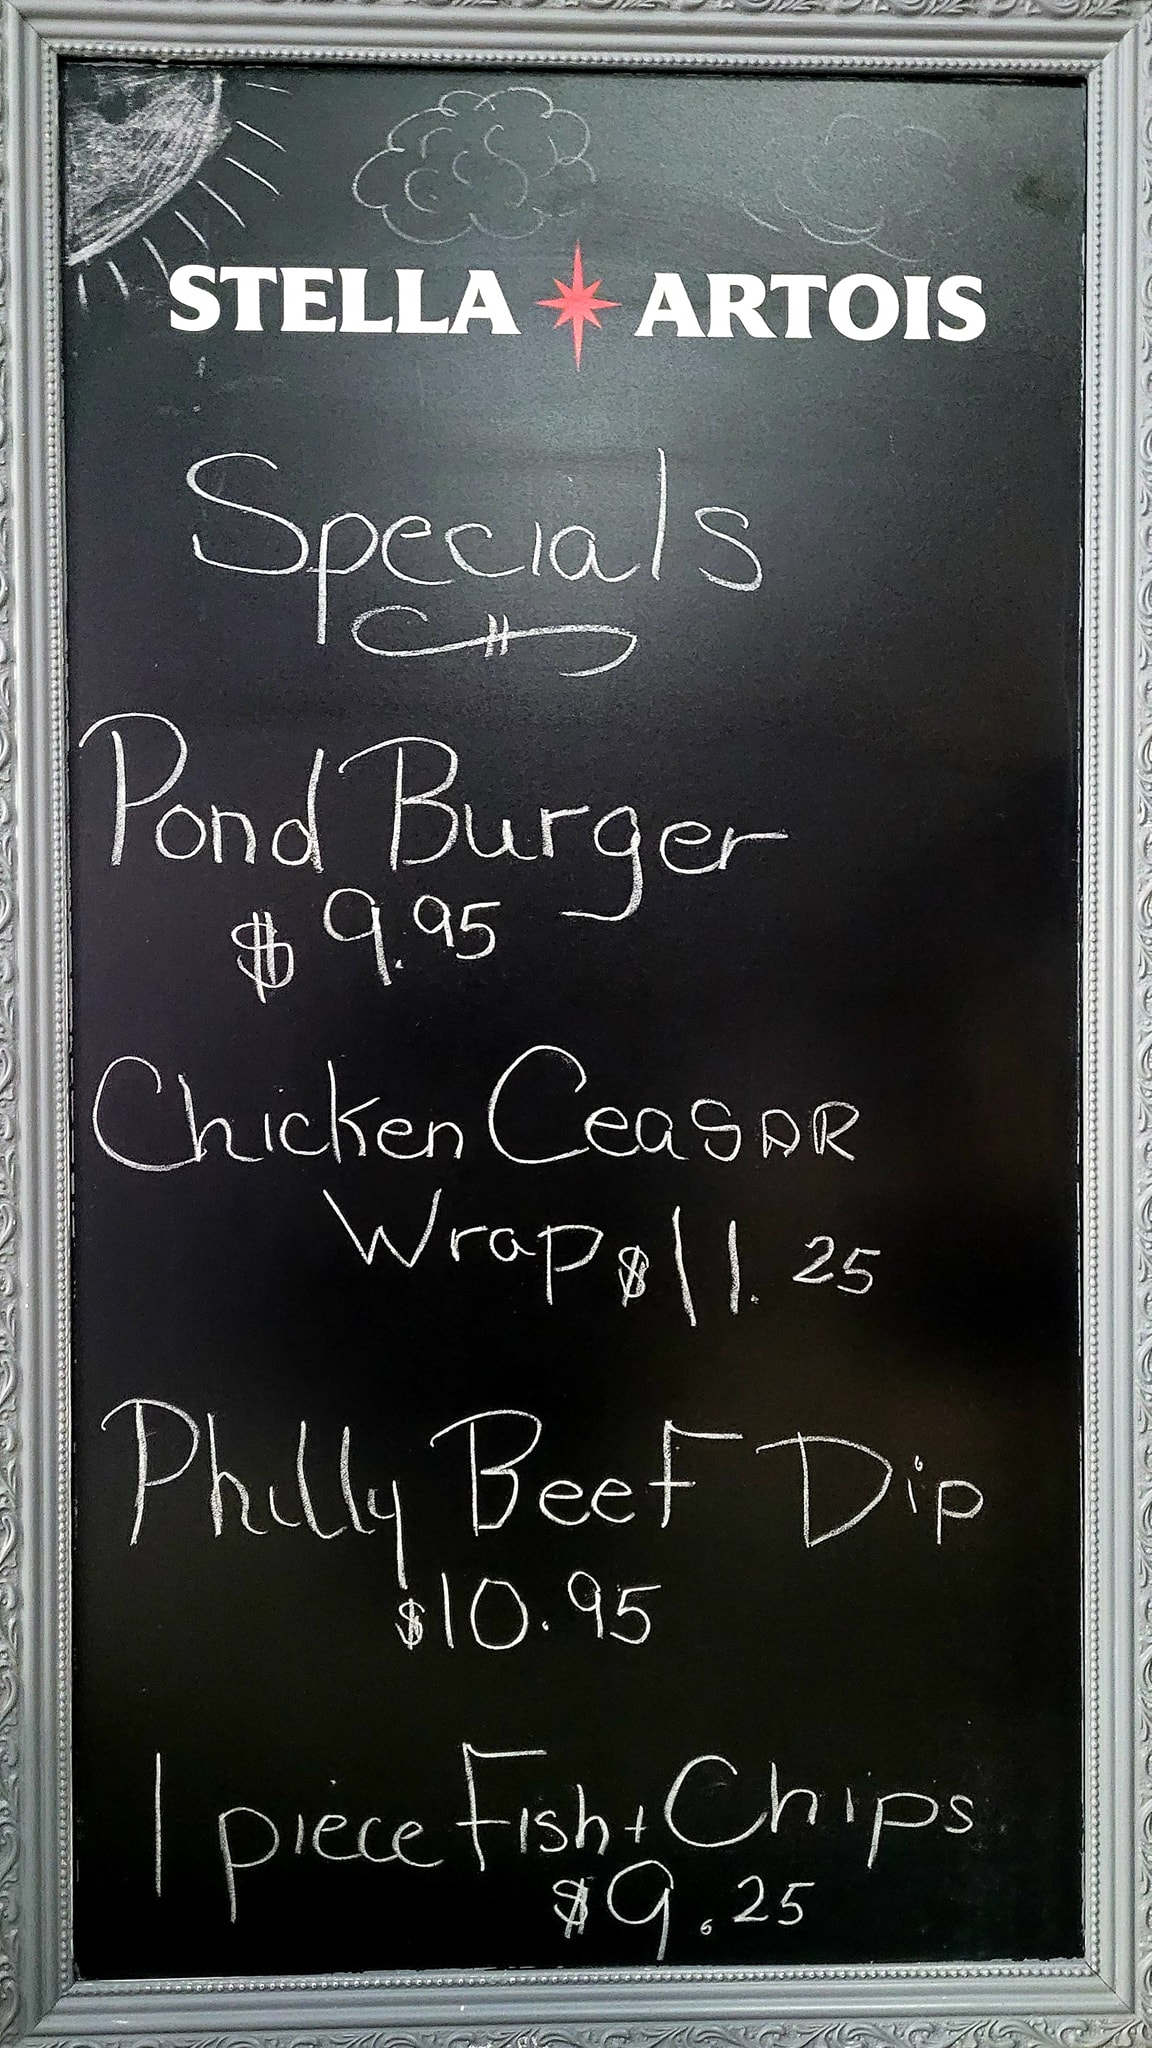 STELLA ARTOIS
Specials
Pond Burger
$9.95
Chicken CeaSAR
Wrap $11.25
Philly Beef Dip
$10.95
1 piece Fish + Chips
$9.25